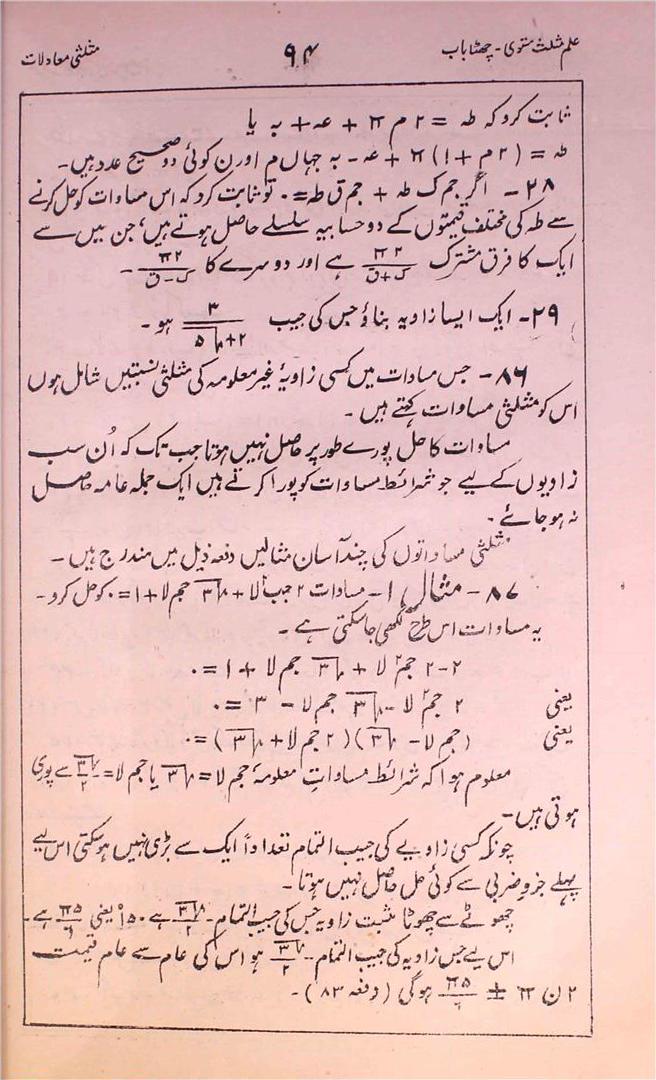 علم مثلث مستوی - چھٹا باب ۹۴ مثلثی معادلات
ثابت کرو کہ طہ = ۲ م π + عہ + بہ یا
طہ = (۲ م + ۱) π + عہ - بہ جہاں م اور ن کوئی دو صحیح عدد ہیں۔
۲۸ - اگر جم ک طہ + جم ق طہ = ۰ تو ثابت کرو کہ اس مساوات کو حل کرنے
سے طہ کی مختلف قیمتوں کے دو حسابیہ سلسلے حاصل ہوتے ہیں، جن میں سے
ایک کا فرق مشترک ۲π/(ک+ق) ہے اور دوسرے کا ۲π/(ک-ق) -
۲۹ - ایک ایسا زاویہ بناؤ جس کی جیب ۳/(۲+√۵) ہو -
۸۶ - جس مساوات میں کسی زاویۂ غیر معلومہ کی مثلثی نسبتیں شامل ہوں
اس کو مثلثی مساوات کہتے ہیں -
مساوات کا حل پورے طور پر حاصل نہیں ہوتا جب تک کہ اُن سب
زاویوں کے لیے جو شرائط مساوات کو پورا کرتے ہیں ایک جملہ عامہ حاصل
نہ ہو جائے -
مثلثی مساواتوں کی چند آسان مثالیں دفعہ ذیل میں مندرج ہیں -
۸۷ - مثال ۱ - مساوات ۲ جب۲ لا + √۳ جم لا + ۱ = ۰ کو حل کرو -
یہ مساوات اس طرح لکھی جا سکتی ہے -
۲ - ۲ جم۲ لا + √۳ جم لا + ۱ = ۰
یعنی ۲ جم۲ لا - √۳ جم لا - ۳ = ۰
یعنی (جم لا - √۳)(۲ جم لا + √۳) = ۰
معلوم ہوا کہ شرائط مساواتِ معلومہ جم لا = √۳ یا جم لا = -√۳/۲ سے پوری
ہوتی ہیں -
چونکہ کسی زاویے کی جیب التمام تعداداً ایک سے بڑی نہیں ہو سکتی اس لیے
پہلے جزو ضربی سے کوئی حل حاصل نہیں ہوتا -
چھوٹے سے چھوٹا مثبت زاویہ جس کی جیب التمام -√۳/۲ ہے ۱۵۰° یعنی ۵π/۶ ہے -
اس لیے جس زاویہ کی جیب التمام -√۳/۲ ہو اس کی عام سے عام قیمت
۲ ن π ± ۵π/۶ ہوگی (دفعہ ۸۳) -